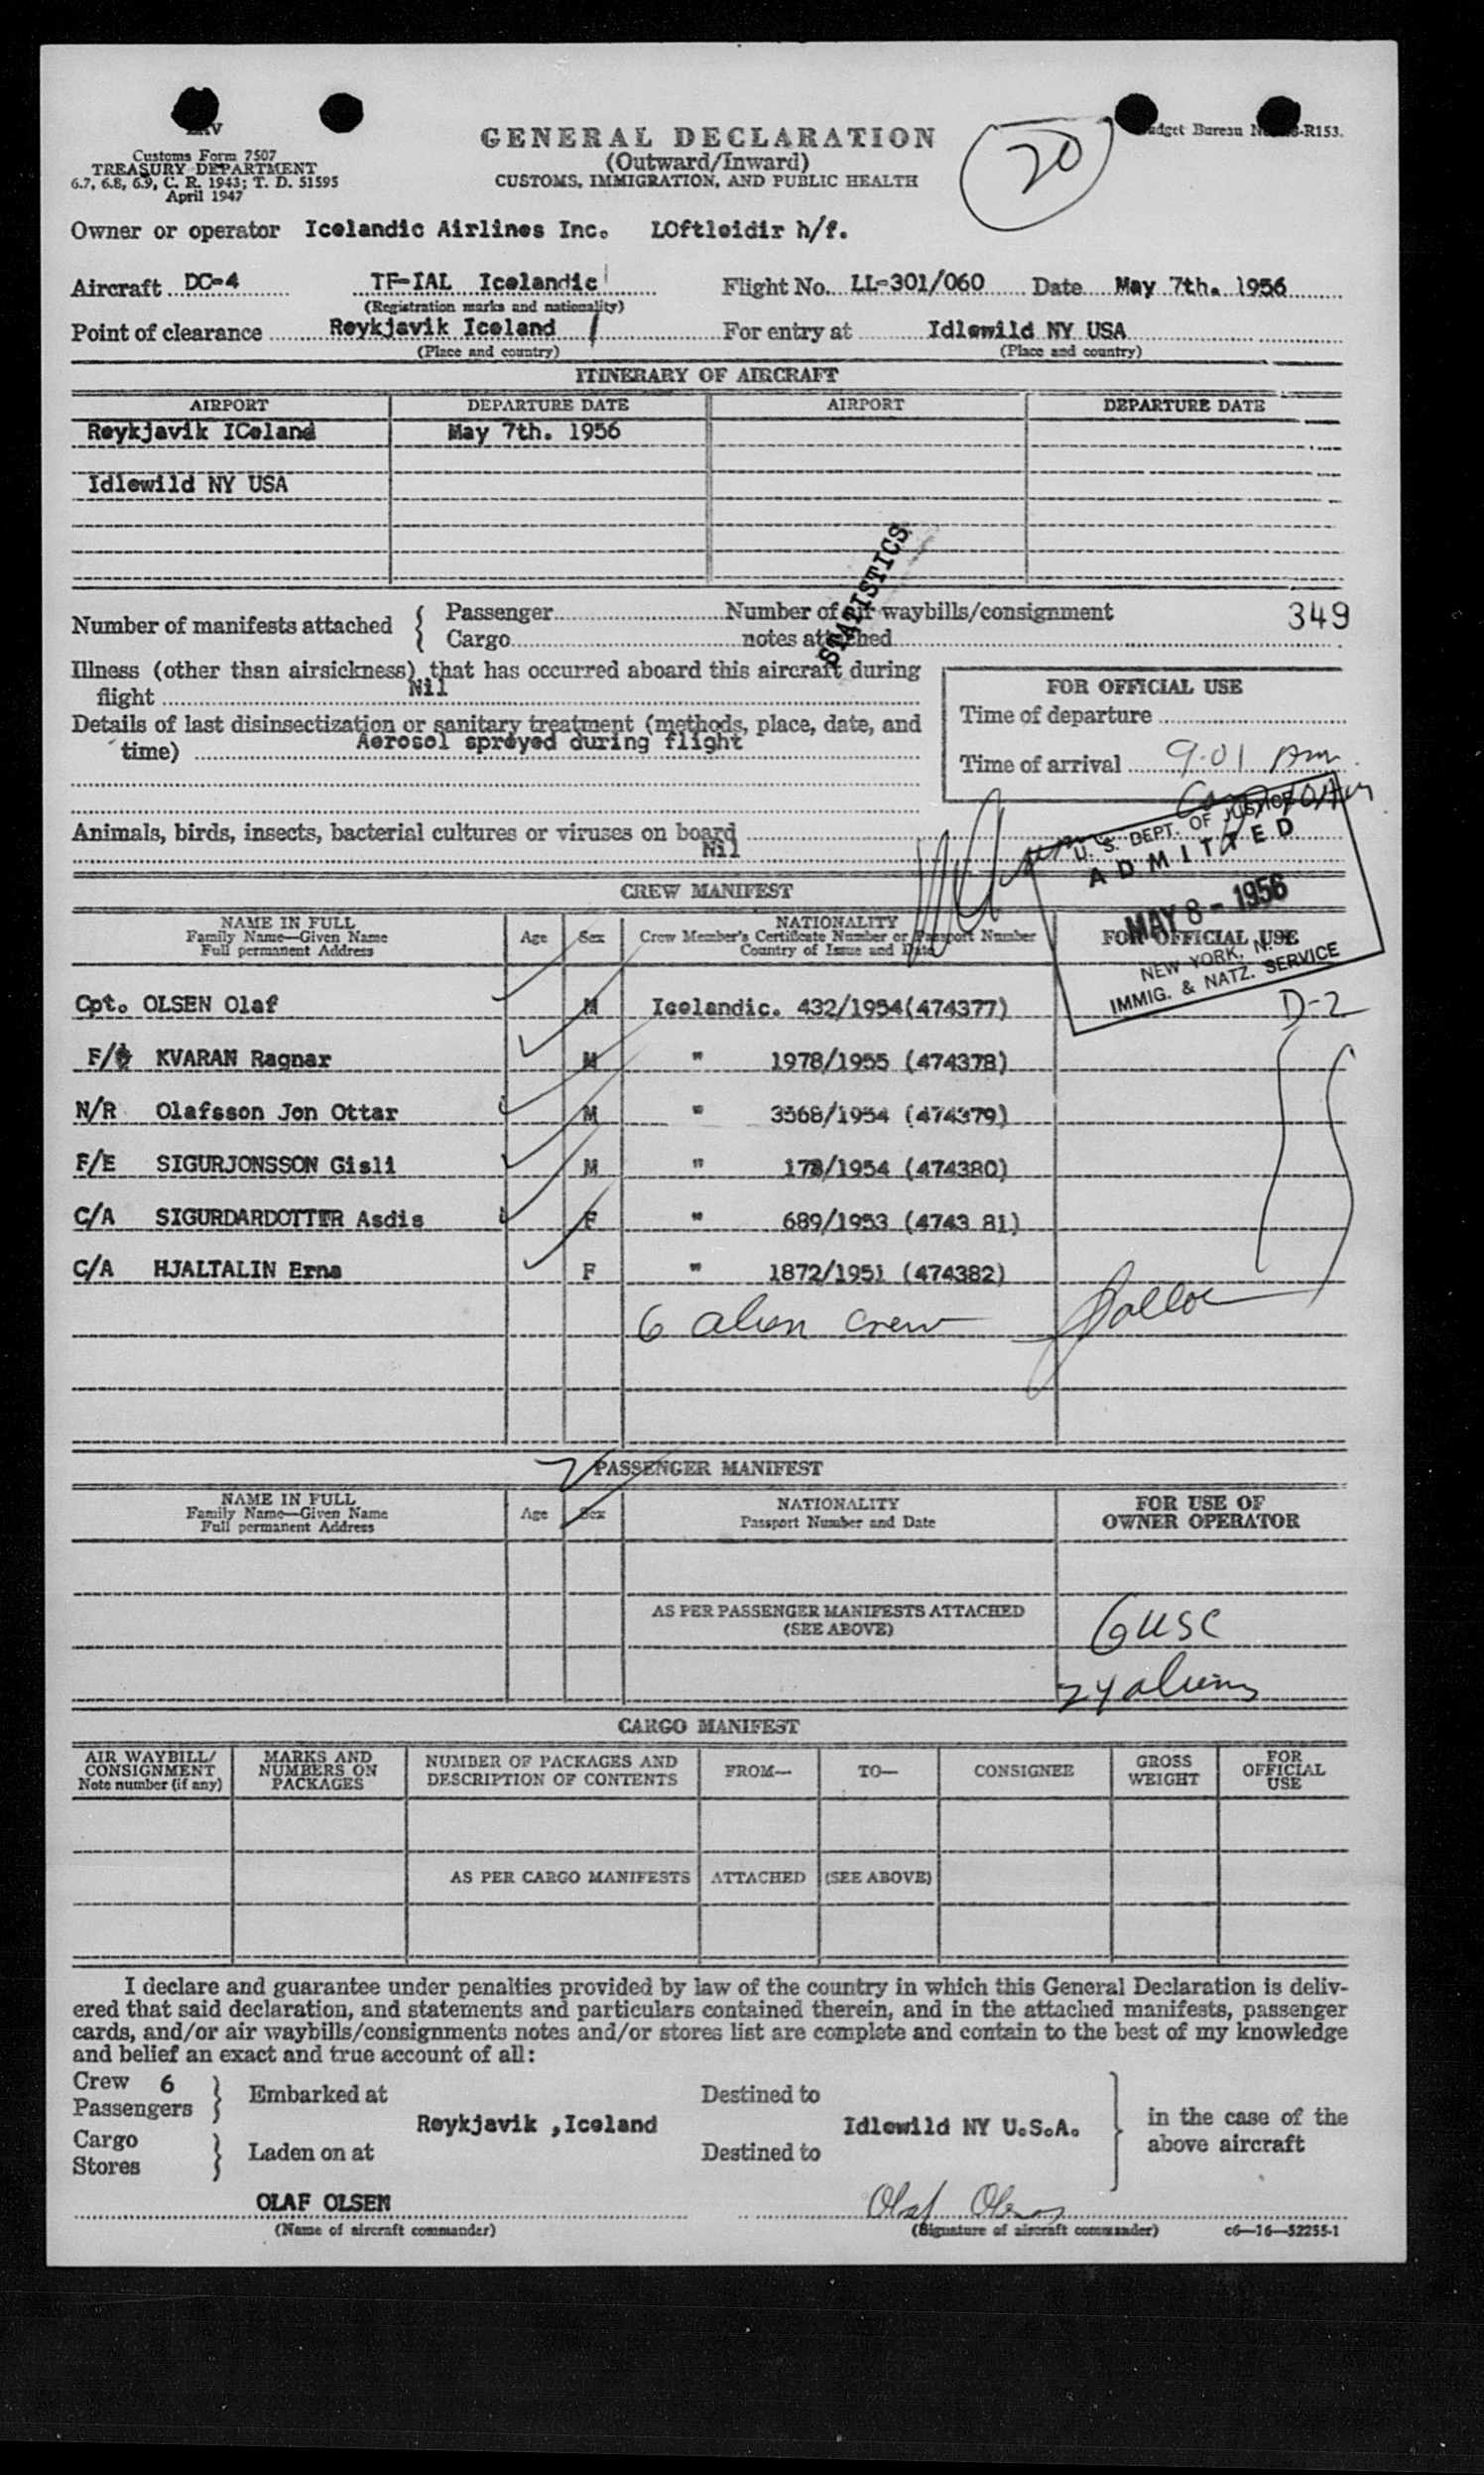 GENERAL DECLARATION
(Outward/Inward)
CUSTOMS, IMMIGRATION, AND PUBLIC HEALTH
20
Budget Bureau No. -R153.
Customs Form 7507
TREASURY DEPARTMENT
6.7, 6.8, 6.9, C. R. 1943; T. D. 51595
April 1947
Owner or operator Icelandic Airlines Inc. LOftleidir h/f.
Aircraft DC-4 TF-IAL Icelandic Flight No. LL-301/060 Date May 7th. 1956
(Registration marks and nationality)
Point of clearance Reykjavik Iceland For entry at Idlewild NY USA
(Place and country) (Place and country)
ITINERARY OF AIRCRAFT
AIRPORT DEPARTURE DATE AIRPORT DEPARTURE DATE
Reykjavik ICeland May 7th. 1956
Idlewild NY USA
STATISTICS
Number of manifests attached { Passenger Number of air waybills/consignment 349
Cargo notes attached
Illness (other than airsickness) that has occurred aboard this aircraft during
flight Nil
Details of last disinsectization or sanitary treatment (methods, place, date, and
time) Aerosol spreyed during flight
FOR OFFICIAL USE
Time of departure
Time of arrival 9.01 Am
Animals, birds, insects, bacterial cultures or viruses on board
Nil
U. S. DEPT. OF JUSTICE
ADMITTED
MAY 8 - 1956
NEW YORK, N. Y.
IMMIG. & NATZ. SERVICE
CREW MANIFEST
NAME IN FULL
Family Name—Given Name
Full permanent Address
Age Sex
NATIONALITY
Crew Member's Certificate Number or Passport Number
Country of Issue and Date
FOR OFFICIAL USE
Cpt. OLSEN Olaf M Icelandic. 432/1954(474377) D-2
F/O KVARAN Ragnar M " 1978/1955 (474378)
N/R Olafsson Jon Ottar M " 3568/1954 (474379)
F/E SIGURJONSSON Gisli M " 178/1954 (474380)
C/A SIGURDARDOTTER Asdis F " 689/1953 (4743 81)
C/A HJALTALIN Erna F " 1872/1951 (474382)
6 alien crew
PASSENGER MANIFEST
NAME IN FULL
Family Name—Given Name
Full permanent Address
Age Sex
NATIONALITY
Passport Number and Date
FOR USE OF
OWNER OPERATOR
AS PER PASSENGER MANIFESTS ATTACHED
(SEE ABOVE)
6 USC
24 aliens
CARGO MANIFEST
AIR WAYBILL/
CONSIGNMENT
Note number (if any)
MARKS AND
NUMBERS ON
PACKAGES
NUMBER OF PACKAGES AND
DESCRIPTION OF CONTENTS
FROM— TO— CONSIGNEE
GROSS
WEIGHT
FOR
OFFICIAL
USE
AS PER CARGO MANIFESTS ATTACHED (SEE ABOVE)
I declare and guarantee under penalties provided by law of the country in which this General Declaration is deliv-
ered that said declaration, and statements and particulars contained therein, and in the attached manifests, passenger
cards, and/or air waybills/consignments notes and/or stores list are complete and contain to the best of my knowledge
and belief an exact and true account of all:
Crew 6
Passengers } Embarked at Destined to
Reykjavik ,Iceland Idlewild NY U.S.A. } in the case of the
above aircraft
Cargo
Stores } Laden on at Destined to
OLAF OLSEN Olaf Olsen
(Name of aircraft commander) (Signature of aircraft commander) c6—16—52255-1